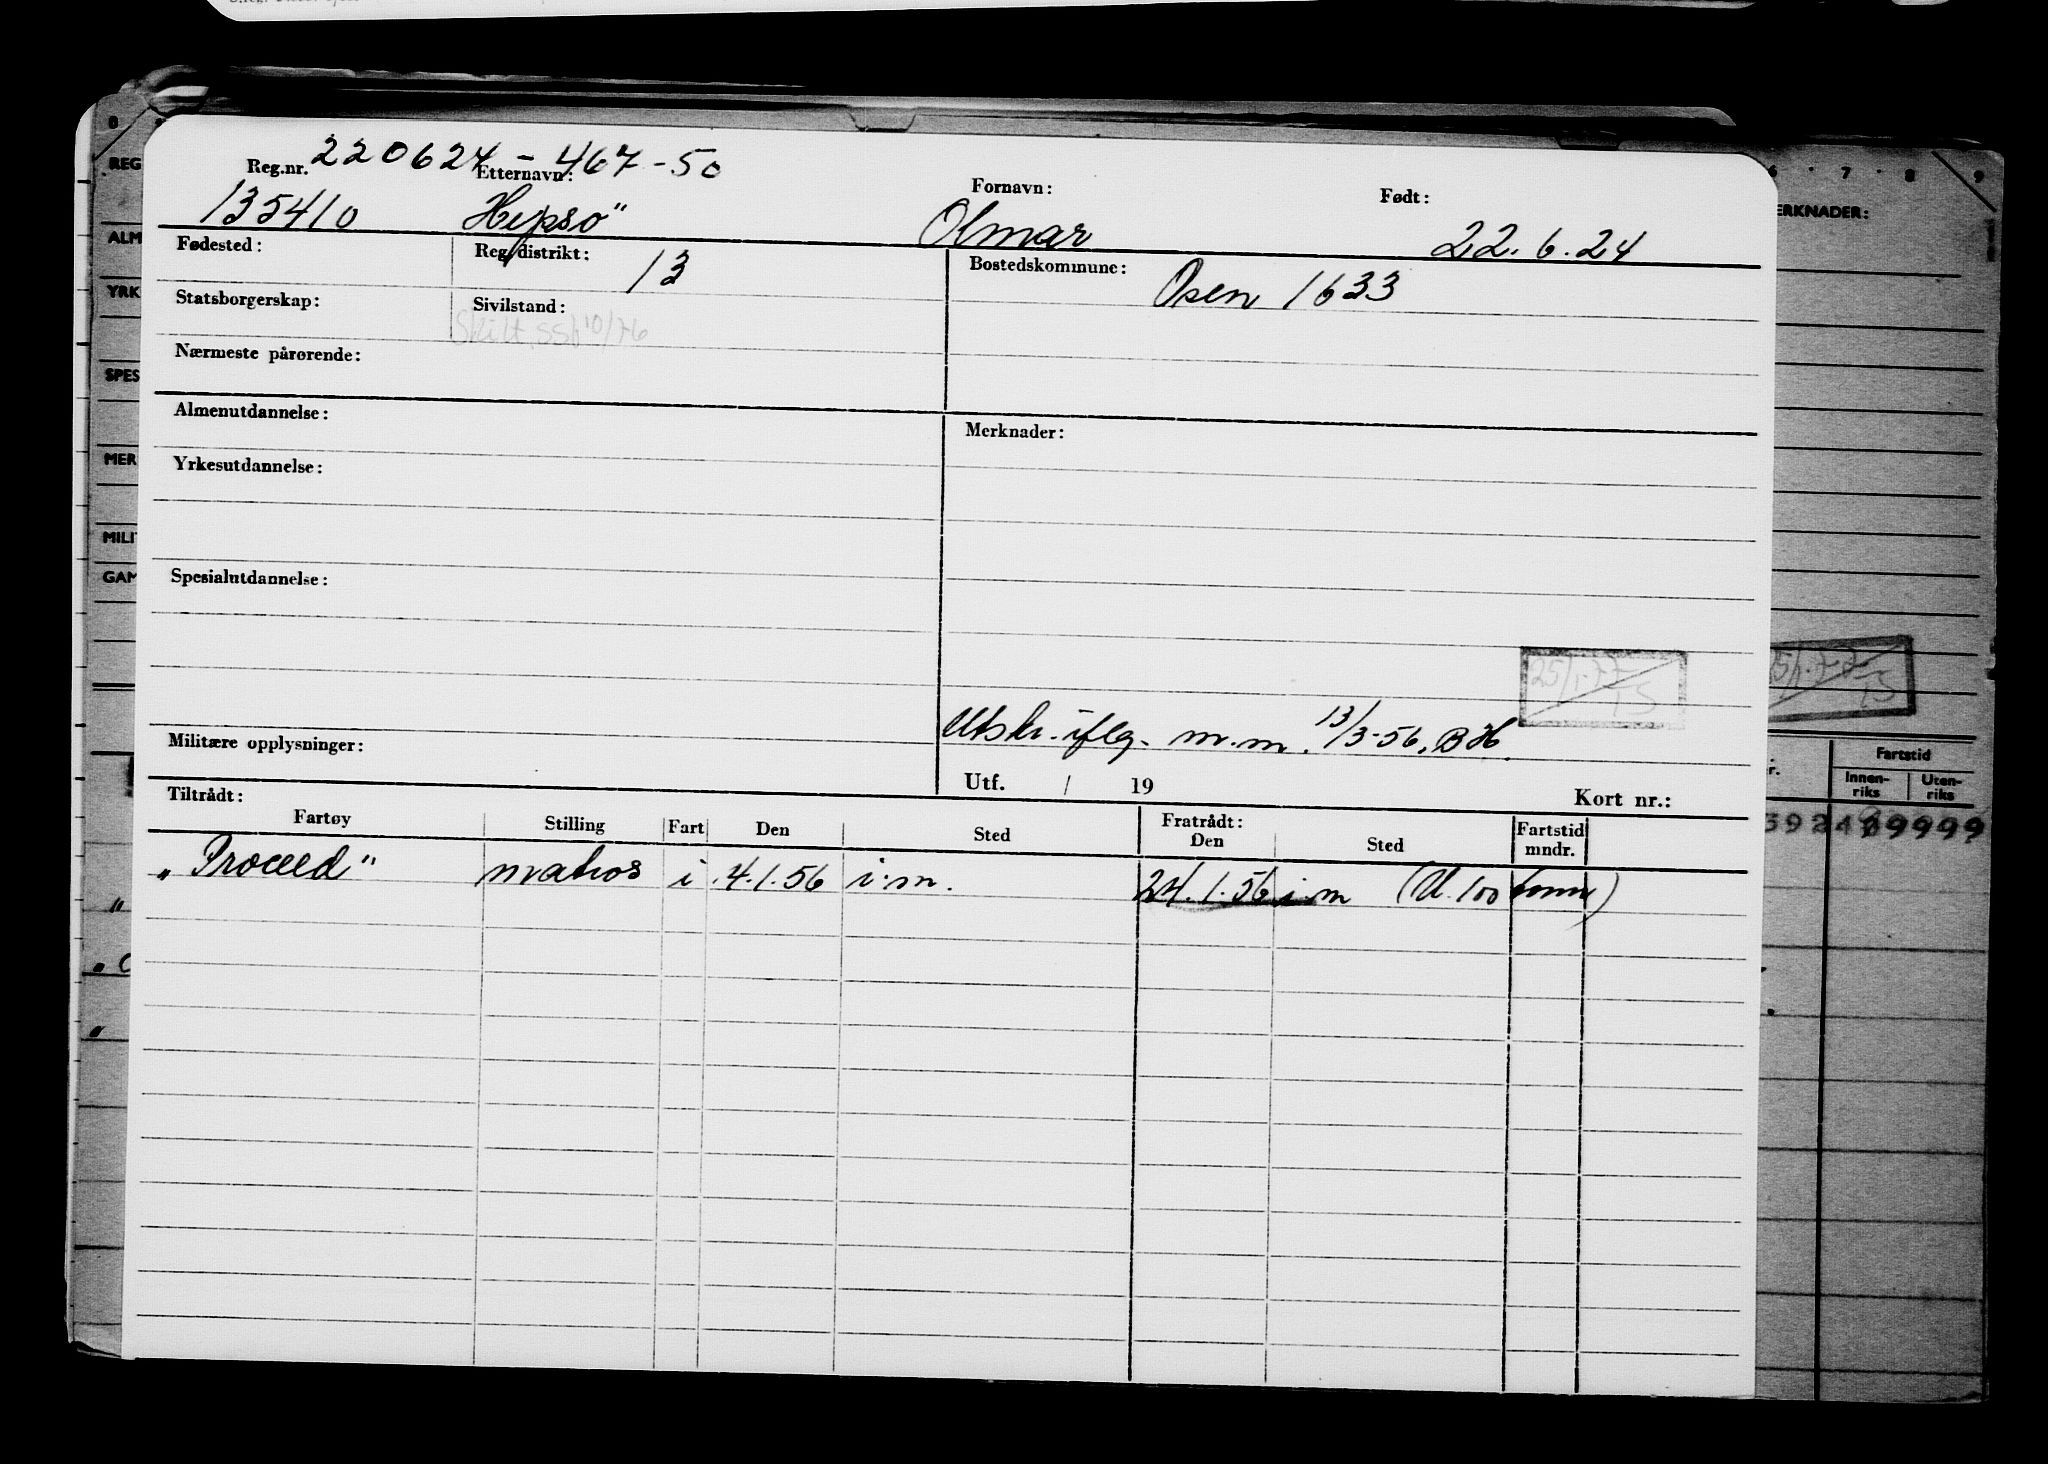 220624-467-50
Reg.nr. Etternavn: Fornavn: Født:
135410 Hepsø Olmar 22.6.24
Fødested: Reg.distrikt: 13 Bostedskommune: Osen 1633
Statsborgerskap: Sivilstand:
Skilt, SSB 10/76
Nærmeste pårørende:
Almenutdannelse: Merknader:
Yrkesutdannelse:
Spesialutdannelse:
25/1-77
TS
Utskr. iflg. m.m. 13/3-56. BH.
Militære opplysninger:
Utf. / 19 Kort nr.:
Tiltrådt: Fratrådt:
Fartøy Stilling Fart Den Sted Den Sted Fartstid mndr.
„Proceed" matros i 4.1.56 i.m. 24.1.56 i.m (U. 100 tonn)
REG
ALM
YRK
SPES
MER
MILIT
GAM
6 7 8 9
ERKNADER:
25/1-77
TS
Fartstid
Innen-riks Uten-riks